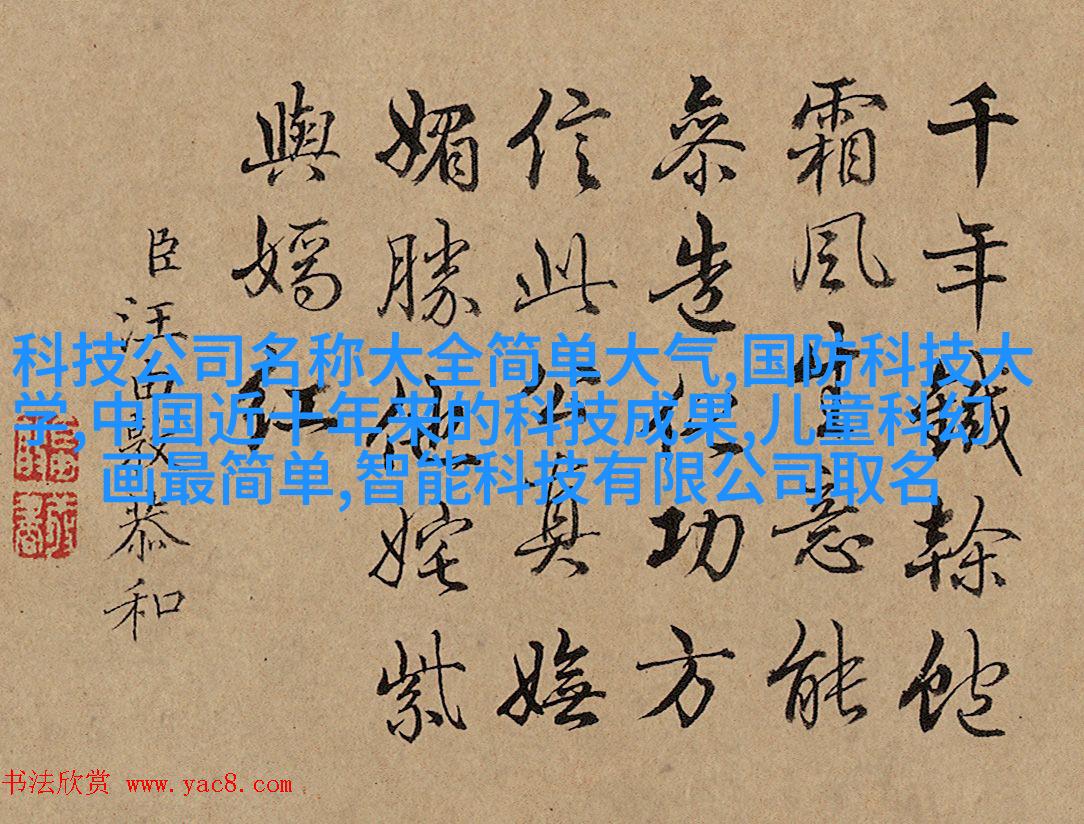 千年鐵榦飽
霜風生意能
參造化功方
信此真嫵
媚勝姹紫
與嫣紅
臣汪由敦恭和
科技公司名称大全简单大气,国防科技大
学,中国近十年来的科技成果,儿童科幻
画最简单,智能科技有限公司取名
书法欣赏 www.yac8.com